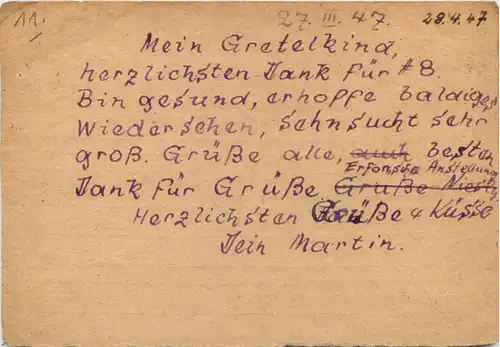 11. 27. III. 47. 28.4.47
Mein Gretelkind,
herzlichsten Dank für #8.
Bin gesund, erhoffe baldiges
Wiedersehen, sehnsucht sehr
groß. Grüße alle, auch besten
Erforsche Anstellung
Dank für Grüße Grüße
Herzlichsten Grüße & Küsse
Dein Martin.